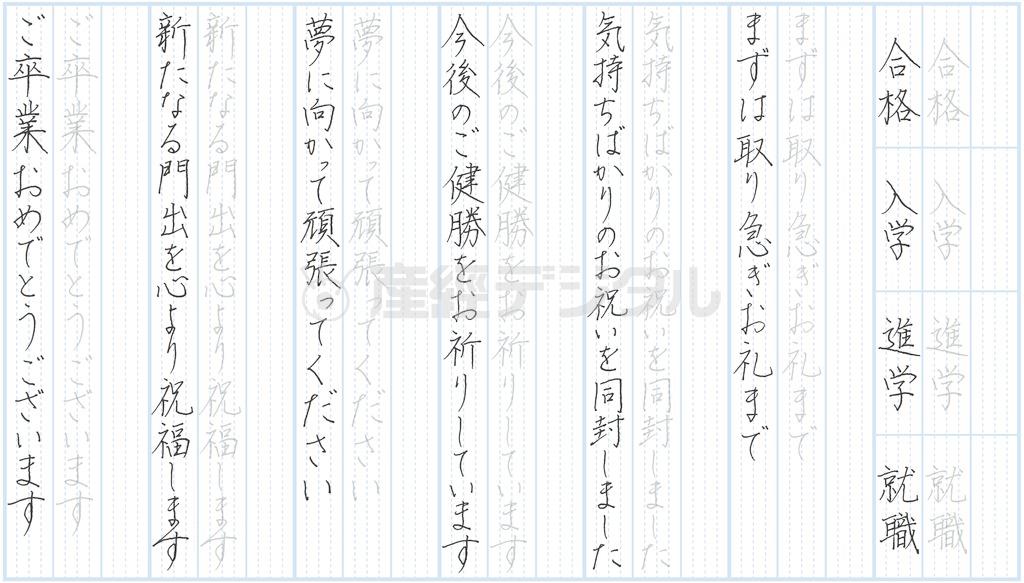 合格 入学 進学 就職
合格 入学 進学 就職
まずは取り急ぎお礼まで
まずは取り急ぎお礼まで
気持ちばかりのお祝いを同封しました
気持ちばかりのお祝いを同封しました
今後のご健勝をお祈りしています
今後のご健勝をお祈りしています
夢に向かって頑張ってください
夢に向かって頑張ってください
新たなる門出を心より祝福します
新たなる門出を心より祝福します
ご卒業おめでとうございます
ご卒業おめでとうございます
産経デジタル